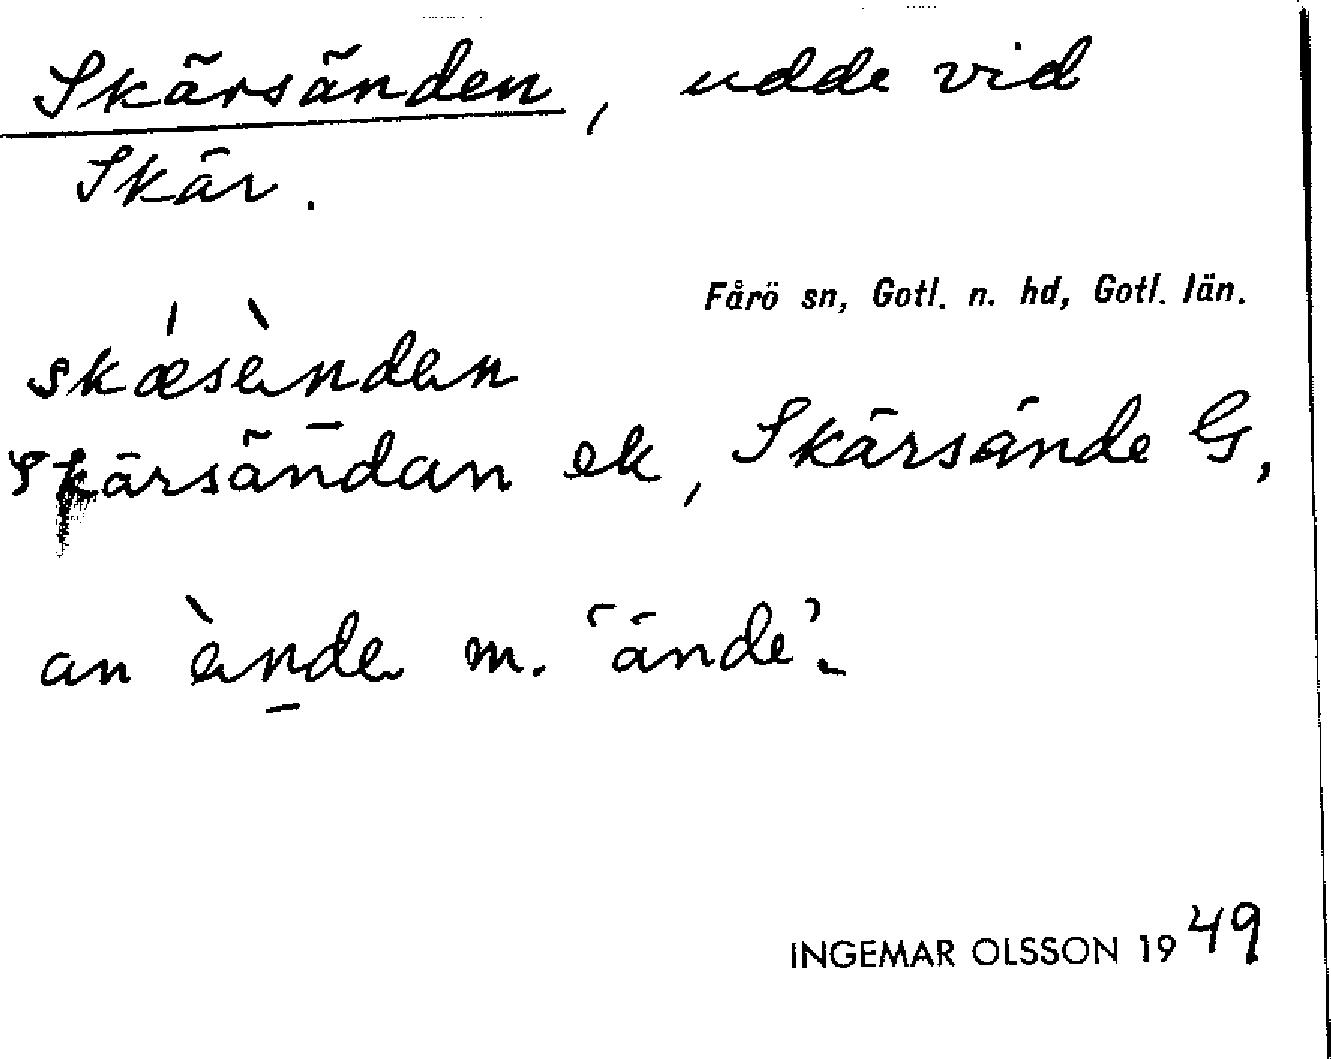 Skärsänden, udde vid
Skär.
Fårö sn, Gotl. n. hd, Gotl. län.
skǽsèndan
Skärsändan ek, Skärsände G,
an ènde m. 'ände'.
INGEMAR OLSSON 1949